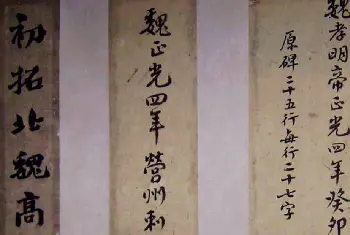 魏孝明帝正光四年癸卯
原碑二十五行每行二十七字
魏正光四年營州刺
初拓北魏高